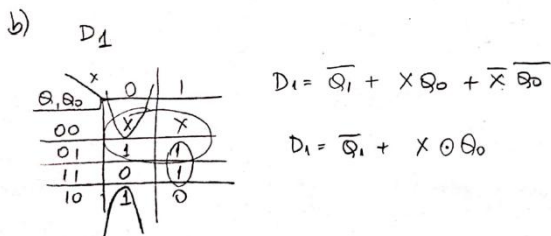 b)
D1
x 0 1
Q1Q0
00 X X
01 1 1
11 0 1
10 1 0
D1 = Q̅1̅ + X Q0 + X̅ Q̅0̅
D1 = Q̅1 + X ⊙ Q0